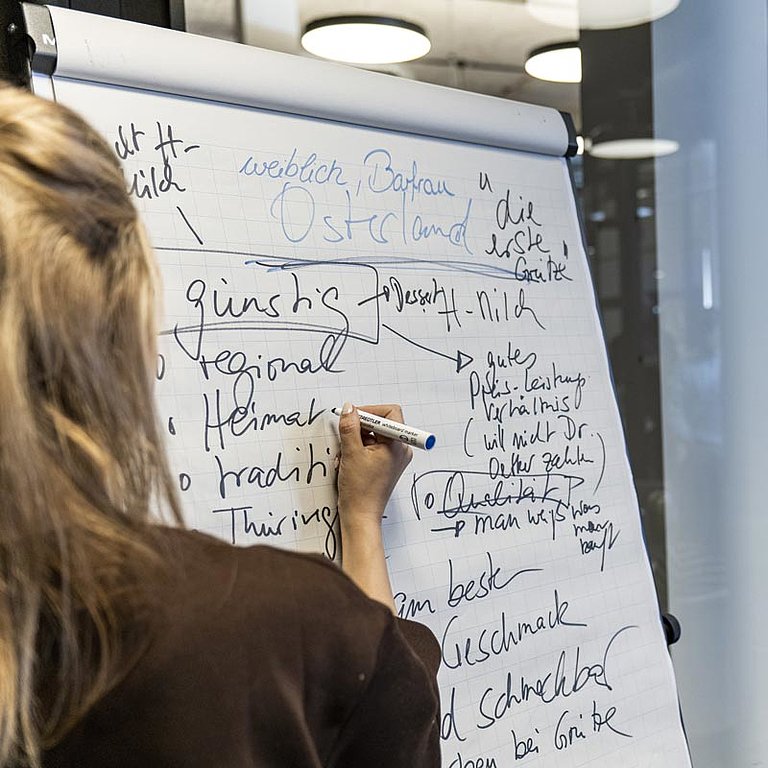 H-
weiblich, Barfrau
Osterland
"die
erste
Grütze"
günstig → Dessert H-Milch
regional
Heimat
traditi
Thüring
gutes
Preis-Leistungs
Verhältnis
(will nicht Dr.
Oetker zahlen)
Qualität
→ man weiß was
man
kauft
am besten
Geschmack
schmeckbar
bei Grütze
STAEDTLER whiteboard marker